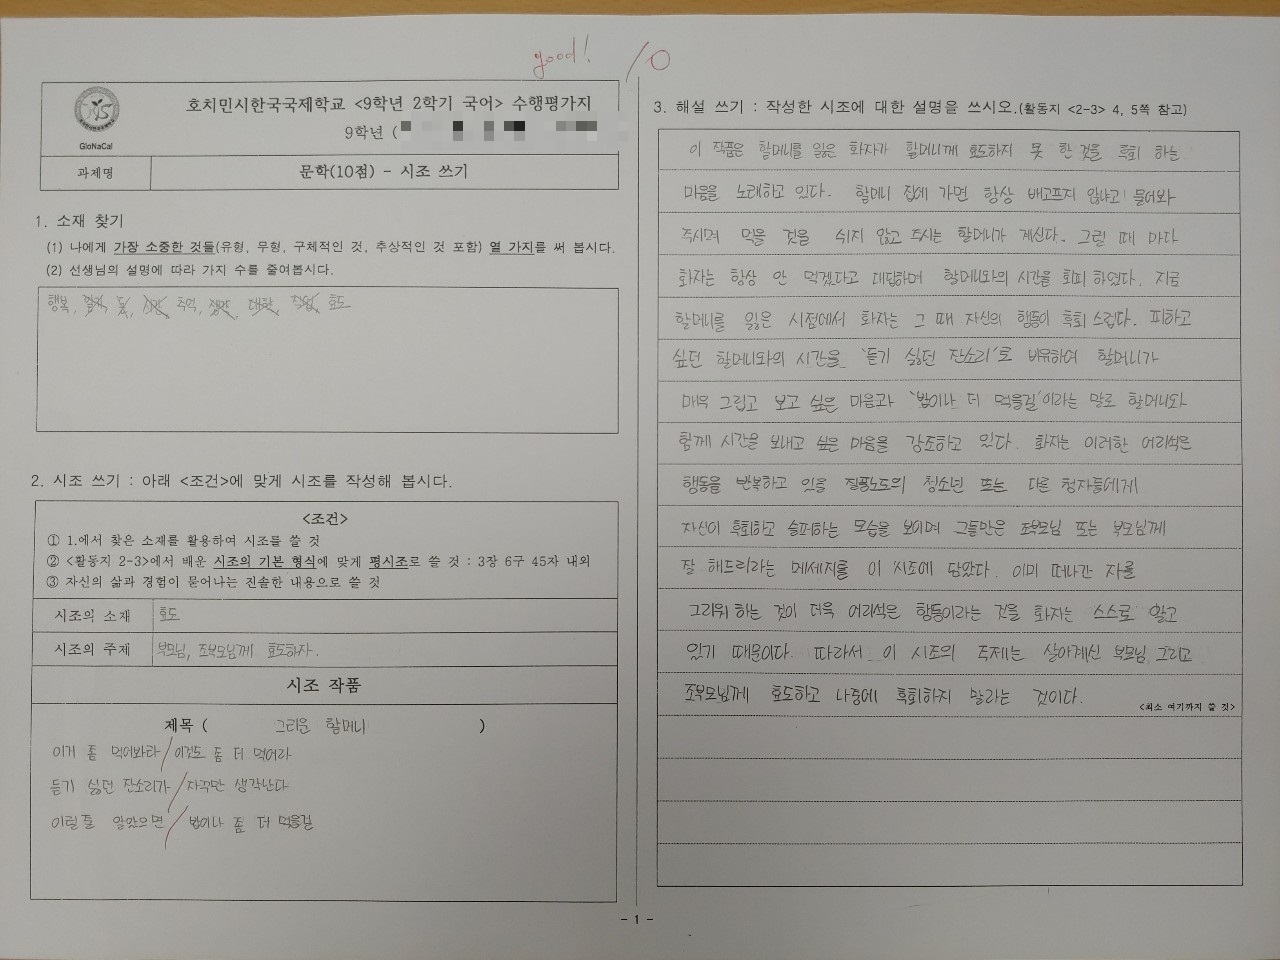 good! /0
호치민시한국국제학교 <9학년 2학기 국어> 수행평가지
9학년 (
GloNaCal
과제명
문학(10점) - 시조 쓰기
1. 소재 찾기
(1) 나에게 가장 소중한 것들(유형, 무형, 구체적인 것, 추상적인 것 포함) 열 가지를 써 봅시다.
(2) 선생님의 설명에 따라 가지 수를 줄여봅시다.
행복, 돈, 추억, 대학, 직업, 효도
2. 시조 쓰기 : 아래 <조건>에 맞게 시조를 작성해 봅시다.
<조건>
① 1.에서 찾은 소재를 활용하여 시조를 쓸 것
② <활동지 2-3>에서 배운 시조의 기본 형식에 맞게 평시조로 쓸 것 : 3장 6구 45자 내외
③ 자신의 삶과 경험이 묻어나는 진솔한 내용으로 쓸 것
시조의 소재
효도
시조의 주제
부모님, 조부모님께 효도하자.
시조 작품
제목 ( 그리운 할머니 )
이거 좀 먹어봐라/이것도 좀 더 먹어라
듣기 싫던 잔소리가/자꾸만 생각난다
이럴줄 알았으면/밥이나 좀 더 먹을걸
3. 해설 쓰기 : 작성한 시조에 대한 설명을 쓰시오.(활동지 <2-3> 4, 5쪽 참고)
이 작품은 할머니를 잃은 화자가 할머니께 효도하지 못 한 것을 후회 하는
마음을 노래하고 있다. 할머니 집에 가면 항상 배고프지 않냐고 물어봐
주시며 먹을 것을 쉬지 않고 주시는 할머니가 계신다. 그럴 때 마다
화자는 항상 안 먹겠다고 대답하며 할머니와의 시간을 회피 하였다. 지금
할머니를 잃은 시점에서 화자는 그 때 자신의 행동이 후회 스럽다. 피하고
싶던 할머니와의 시간을 '듣기 싫던 잔소리'로 비유하여 할머니가
매우 그립고 보고 싶은 마음과 '밥이나 더 먹을걸'이라는 말로 할머니와
함께 시간을 보내고 싶은 마음을 강조하고 있다. 화자는 이러한 어리석은
행동을 반복하고 있을 질풍노도의 청소년 또는 다른 청자들에게
자신이 후회하고 슬퍼하는 모습을 보이며 그들만은 조부모님 또는 부모님께
잘 해드리라는 메세지를 이 시조에 담았다. 이미 떠나간 자를
그리워 하는 것이 더욱 어리석은 행동이라는 것을 화자는 스스로 알고
있기 때문이다. 따라서 이 시조의 주제는 살아계신 부모님, 그리고
조부모님께 효도하고 나중에 후회하지 말라는 것이다.
<최소 여기까지 쓸 것>
- 1 -